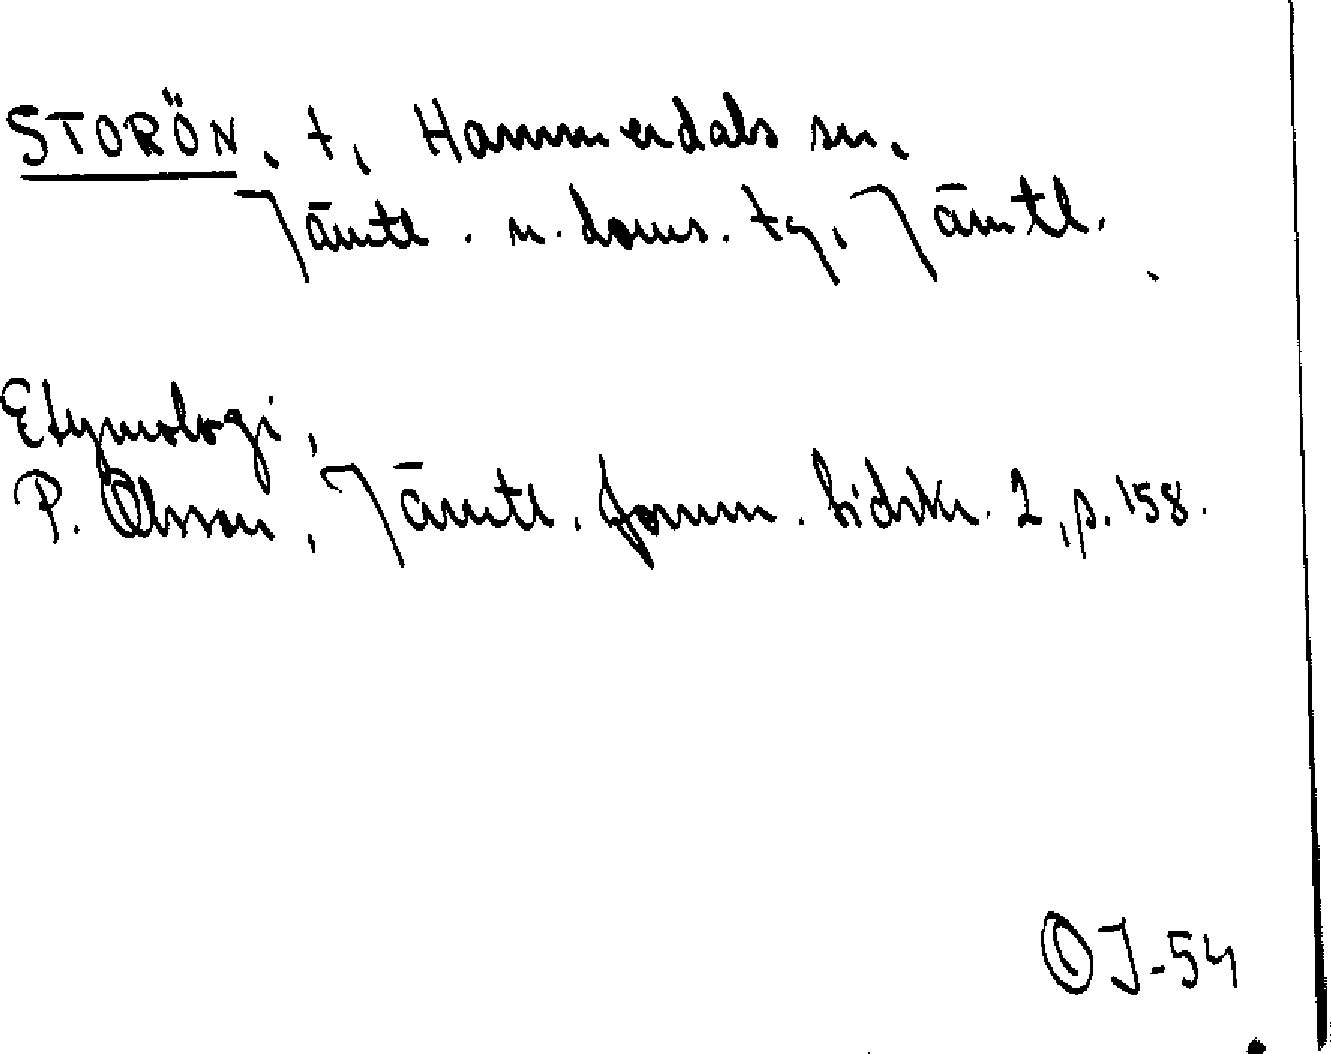 STORÖN, t, Hammerdals sn,
Jämtl. n. doms. tg, Jämtl.
Etymologi,
P. Olsson, Jämtl. fornm. tidskr. 2, p. 158.
OJ-54